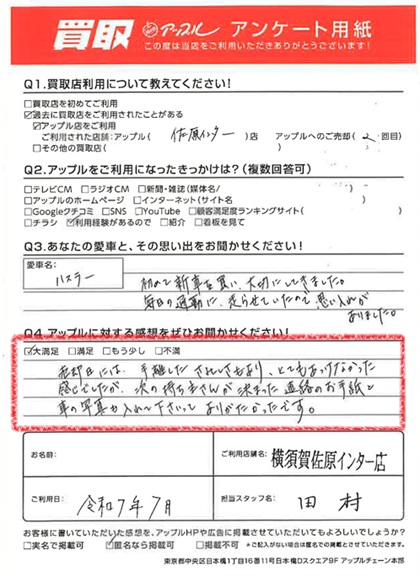 買取 アップル アンケート用紙
この度は当店をご利用いただきありがとうございます!
Q1.買取店利用について教えてください!
□買取店を初めてご利用
☑過去に買取店をご利用されたことがある
☑アップル店をご利用
ご利用された店舗:アップル( 佐原インター )店 アップルへのご売却( 2 回目)
□その他の買取店( )
Q2.アップルをご利用になったきっかけは?(複数回答可)
□テレビCM □ラジオCM □新聞・雑誌(媒体名/ )
□アップルのホームページ □インターネット(サイト名 )
□Googleクチコミ □SNS □YouTube □顧客満足度ランキングサイト( )
□チラシ ☑利用経験があるので □紹介 □看板を見て
Q3.あなたの愛車と、その思い出をお聞かせください!
愛車名:
ハスラー
初めて新車を買い、大切にしてきました。
毎日の通勤に、走らせていたので思い入れが
ありました。
Q4.アップルに対する感想をぜひお聞かせください!
☑大満足 □満足 □もう少し □不満
売却日には、手離した さみしさもあり、とてもあっけなかった
感じでしたが、次の持ち主さんが決まった連絡のお手紙と
車の写真も入れて下さって ありがたかったです。
お名前:
ご利用店舗名:
横須賀佐原インター店
ご利用日:
令和7年7月
担当スタッフ名:
田村
お客様に書いていただいた感想を、アップルHPや広告に掲載させていただいてもよろしいでしょうか?
□実名で掲載可 ☑匿名なら掲載可 □掲載不可 *ご記入がない場合は匿名での掲載とさせていただきます。
東京都中央区日本橋1丁目16番11号日本橋Dスクエア9F アップルチェーン本部